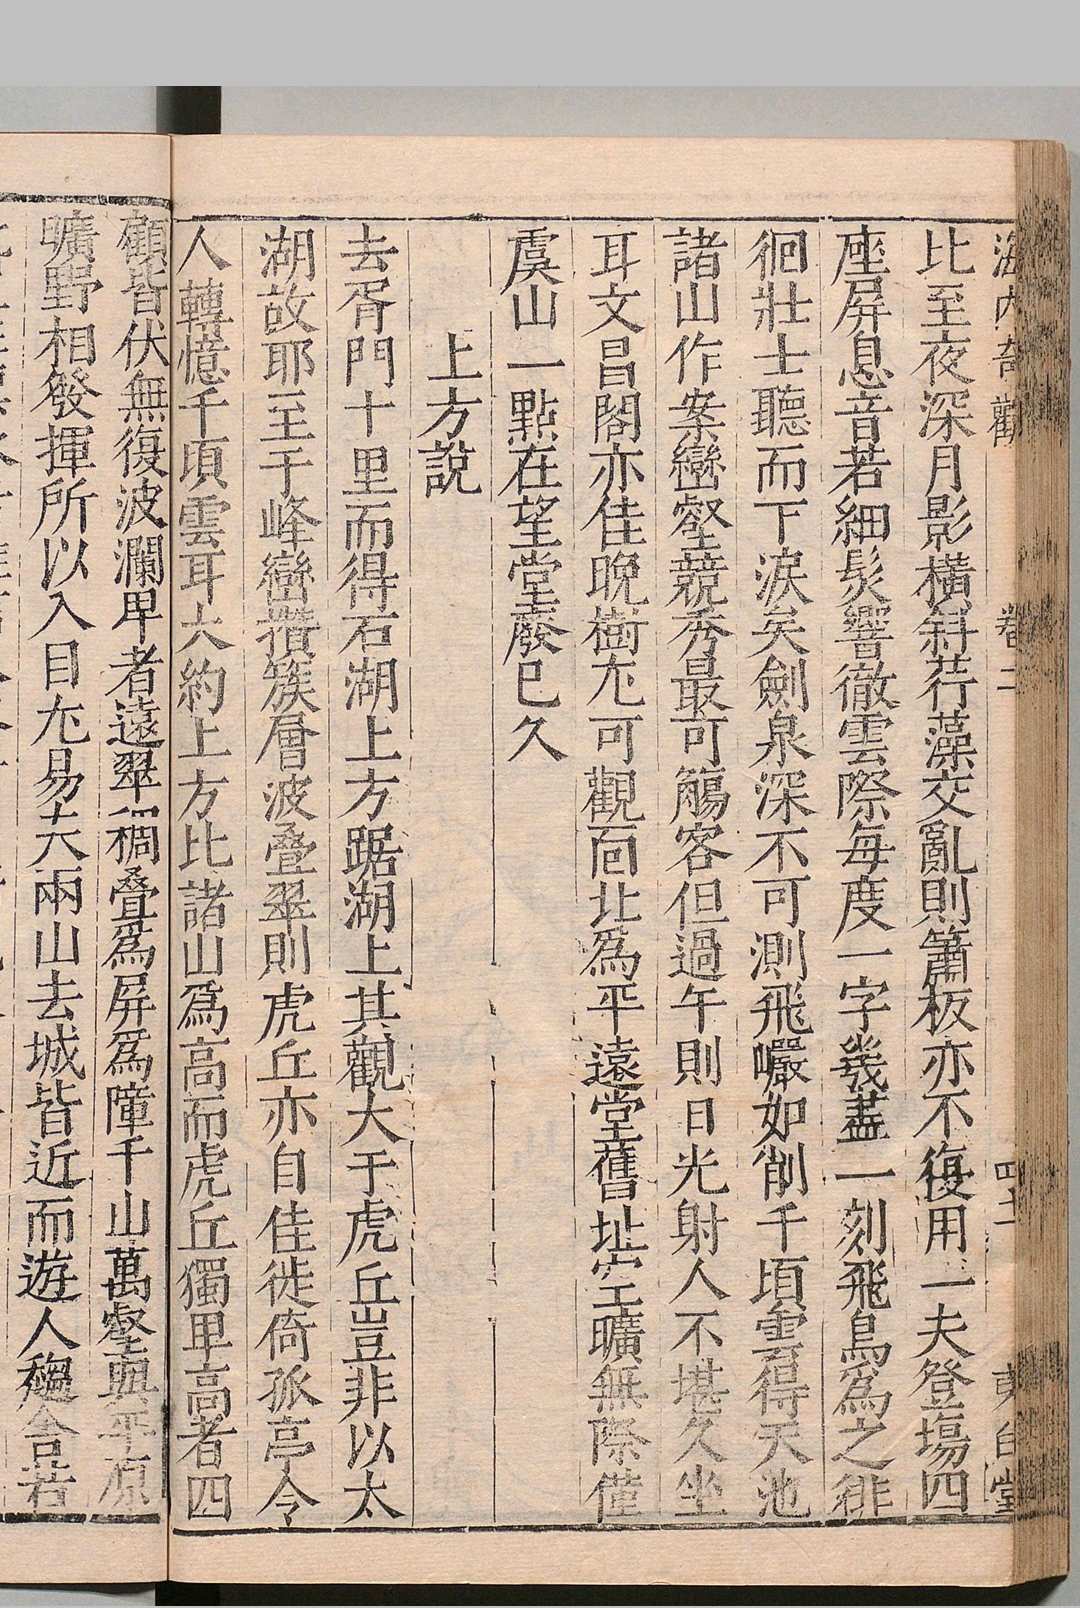 海內奇觀 卷二 四十二 夷白堂
比至夜深月影橫斜荇藻交亂則簫板亦不復用一夫登場四
座屏息音若細髮響徹雲際每度一字幾盡一刻飛鳥為之徘
徊壯士聽而下淚矣劍泉深不可測飛巖如削千頃雲得天池
諸山作案巒壑競秀最可觴客但過午則日光射人不堪久坐
耳文昌閣亦佳晚樹尤可觀面北為平遠堂舊址空曠無際僅
虞山一點在望堂廢已久
上方說
去胥門十里而得石湖上方踞湖上其觀大于虎丘豈非以太
湖故耶至于峰巒攢簇層波疊翠則虎丘亦自佳徙倚孤亭令
人轉憶千頃雲耳大約上方比諸山為高而虎丘獨卑高者四
顧皆伏無復波瀾卑者遠翠稠疊為屏為障千山萬壑與平原
曠野相發揮所以入目尤易夫兩山去城皆近而遊人趨舍若